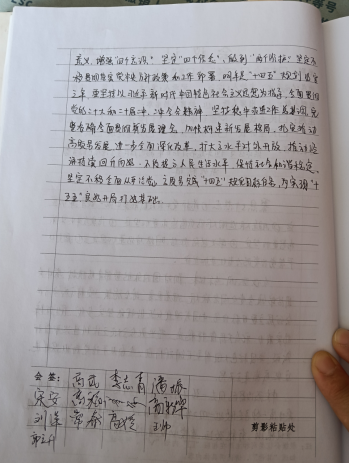 意义，增强"四个意识"、坚定"四个自信"、做到"两个维护"，坚定不
移贯彻落实党中央的决策和工作部署。明年是"十四五"规划收官
之年，要坚持以习近平新时代中国特色社会主义思想为指导，全面贯彻
党的二十大和二十届二中、三中全会精神，坚持稳中求进工作总基调，完
整准确全面贯彻新发展理念，加快构建新发展格局，扎实推动
高质量发展，进一步全面深化改革，扩大高水平对外开放，推动经
济持续回升向好，不断提高人民生活水平，保持社会和谐稳定，
坚定不移全面从严治党，高质量完成"十四五"规划目标任务，为实现"十
五五"良好开局打牢基础。
会签：
李志青
宋安
刘
剪影粘贴处